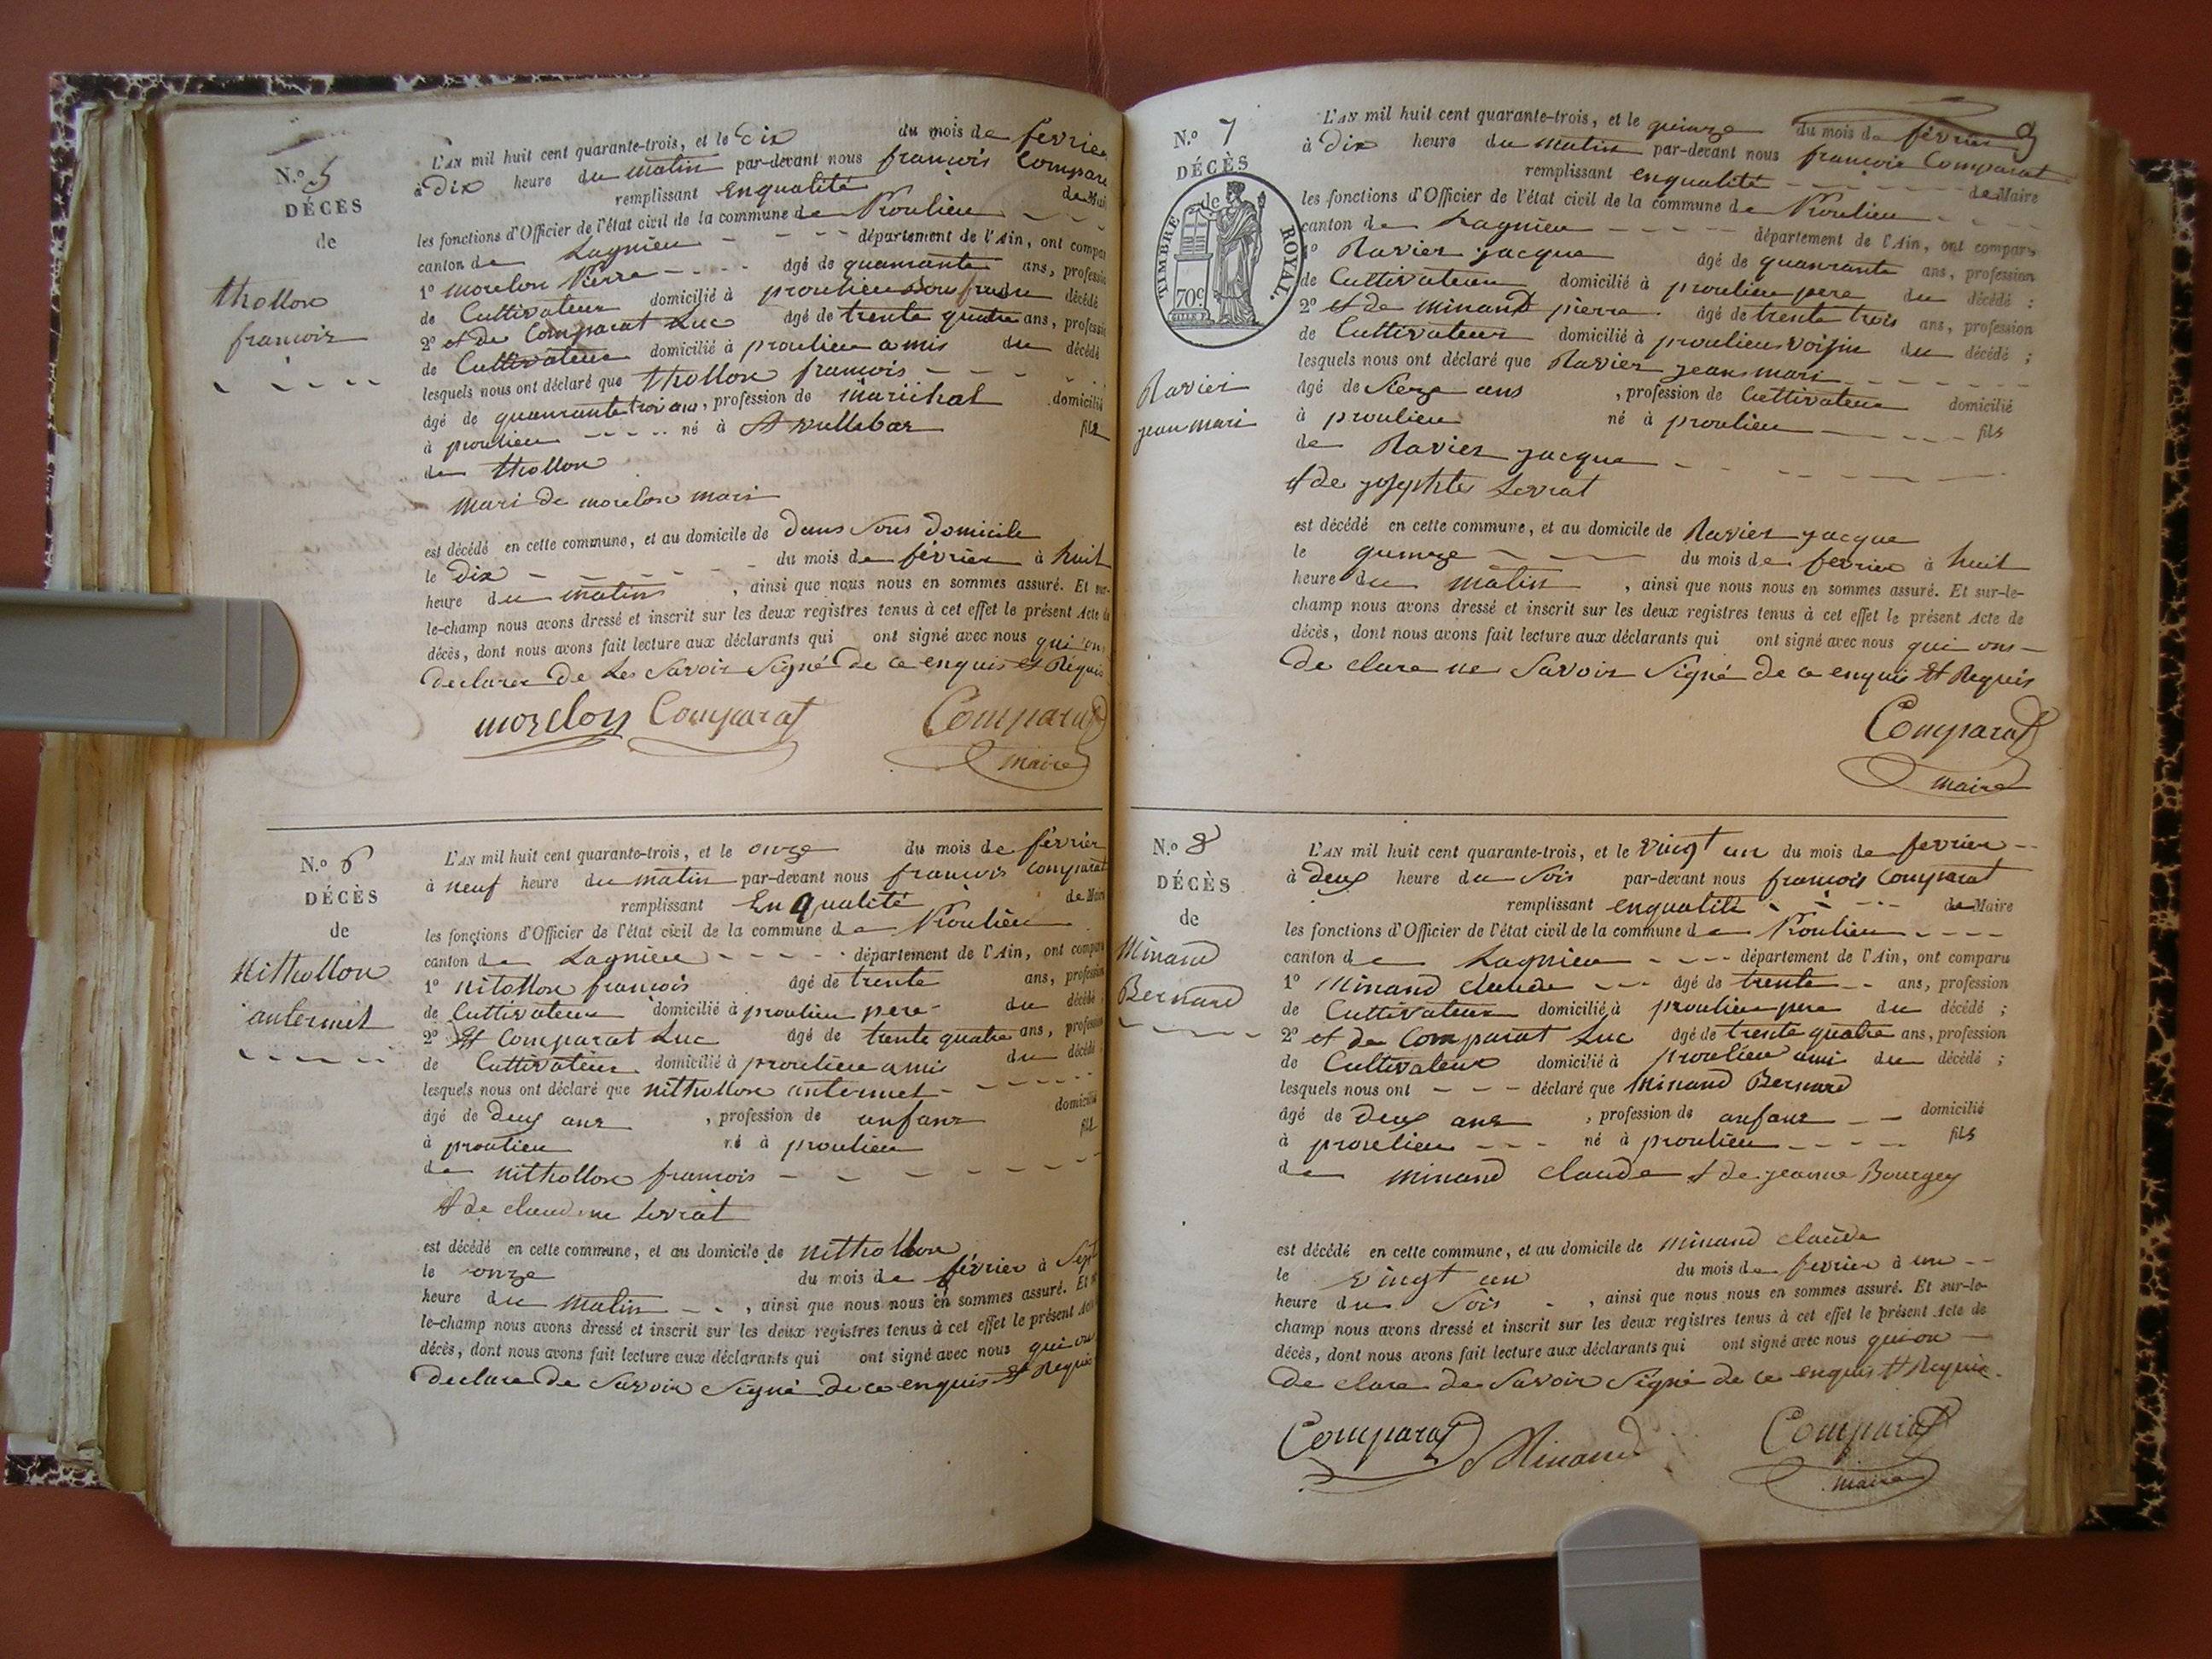 N.º 5
DÉCÈS
de
thollon
francois
L'AN mil huit cent quarante-trois, et le Dix du mois de fevrier
à Dix heure du matin par-devant nous francois Compara
remplissant Enqualité de Mai
les fonctions d'Officier de l'état civil de la commune de Proulieu
canton de Lagnieu département de l'Ain, ont compar
1º morelon Pierre âgé de quamrante ans, professio
de Cultivateur domicilié à proulieu décédé
2º et de Comparat Luc âgé de trente quatre ans, professio
de Cultivateur domicilié à proulieu amis du décédé
lesquels nous ont déclaré que thollon francois
âgé de quamrante trois ans, profession de maréchal domicilié
à proulieu né à fils
de thollon
mari de morelon mari
est décédé en cette commune, et au domicile de dans sons domicile
le Dix du mois de février à huit
heure du matin, ainsi que nous nous en sommes assuré. Et sur-
le-champ nous avons dressé et inscrit sur les deux registres tenus à cet effet le présent Acte de
décès, dont nous avons fait lecture aux déclarants qui ont signé avec nous qui on
declarer de Les Savoir Signé De ce enquis et Réquis
morelon Comparat Comparat
maire
N.º 6
DÉCÈS
de
Nithollon
antermet
L'AN mil huit cent quarante-trois, et le onze du mois de février
à neuf heure du matin par-devant nous francois Comparat
remplissant En qualité de Maire
les fonctions d'Officier de l'état civil de la commune de Proulieu
canton de Lagnieu département de l'Ain, ont comparu
1º nitollon francois âgé de trente ans, profession
de Cultivateur domicilié à proulieu pere du décédé ;
2º Et Comparat Luc âgé de trente quatre ans, profession
de Cultivateur domicilié à proulieu amis du décédé ;
lesquels nous ont déclaré que nithollon antermet
âgé de deux ans, profession de enfans domicilié
à proulieu né à proulieu fils
de nithollon francois
et de claudine Serrat
est décédé en cette commune, et au domicile de nithollon
le onze du mois de février à Sept
heure du matin, ainsi que nous nous en sommes assuré. Et sur-
le-champ nous avons dressé et inscrit sur les deux registres tenus à cet effet le présent Acte
décès, dont nous avons fait lecture aux déclarants qui ont signé avec nous qui on
declare de Savoir Signé de ce enquis et Requis
N.º 7
DÉCÈS
de
TIMBRE ROYAL.
70c
Ravier
jean mari
L'AN mil huit cent quarante-trois, et le quinze du mois de février
à Dix heure du matin par-devant nous francois Comparat
remplissant enqualité de Maire
les fonctions d'Officier de l'état civil de la commune de Proulieu
canton de Lagnieu département de l'Ain, ont comparu
1º Ravier jacque âgé de quanrante ans, profession
de Cultivateur domicilié à proulieu pere du décédé ;
2º et de minand pierre âgé de trente trois ans, profession
de Cultivateur domicilié à proulieu voisin du décédé ;
lesquels nous ont déclaré que Ravier jean mari
âgé de Sieze ans, profession de Cultivateur domicilié
à proulieu né à proulieu fils
de Ravier jacque
et de josephte Serrat
est décédé en cette commune, et au domicile de Ravier jacque
le quinze du mois de fevrier à huit
heure du matin, ainsi que nous nous en sommes assuré. Et sur-le-
champ nous avons dressé et inscrit sur les deux registres tenus à cet effet le présent Acte de
décès, dont nous avons fait lecture aux déclarants qui ont signé avec nous qui ons
de clare ne Savoir Signé de ce enquis Et Requis
Comparat
maire
N.º 8
DÉCÈS
de
Minand
Bernard
L'AN mil huit cent quarante-trois, et le vingt un du mois de fevrier
à deux heure du Soir par-devant nous francois Comparat
remplissant enqualité de Maire
les fonctions d'Officier de l'état civil de la commune de Proulieu
canton de Lagnieu département de l'Ain, ont comparu
1º Minand claude âgé de trente ans, profession
de Cultivateur domicilié à proulieu pere du décédé ;
2º et de Comparat Luc âgé de trente quatre ans, profession
de Cultivateur domicilié à proulieu ami du décédé ;
lesquels nous ont déclaré que Minand Bernard
âgé de deux ans, profession de anfans domicilié
à proulieu né à proulieu fils
de minand claude et de jeanne Bourgey
est décédé en cette commune, et au domicile de minand claude
le vingt un du mois de fevrier à un
heure du Soir, ainsi que nous nous en sommes assuré. Et sur-le-
champ nous avons dressé et inscrit sur les deux registres tenus à cet effet le présent Acte de
décès, dont nous avons fait lecture aux déclarants qui ont signé avec nous qui on
de clare de Savoir Signé de ce enquis Et Requis
Comparat Minand Comparat
maire